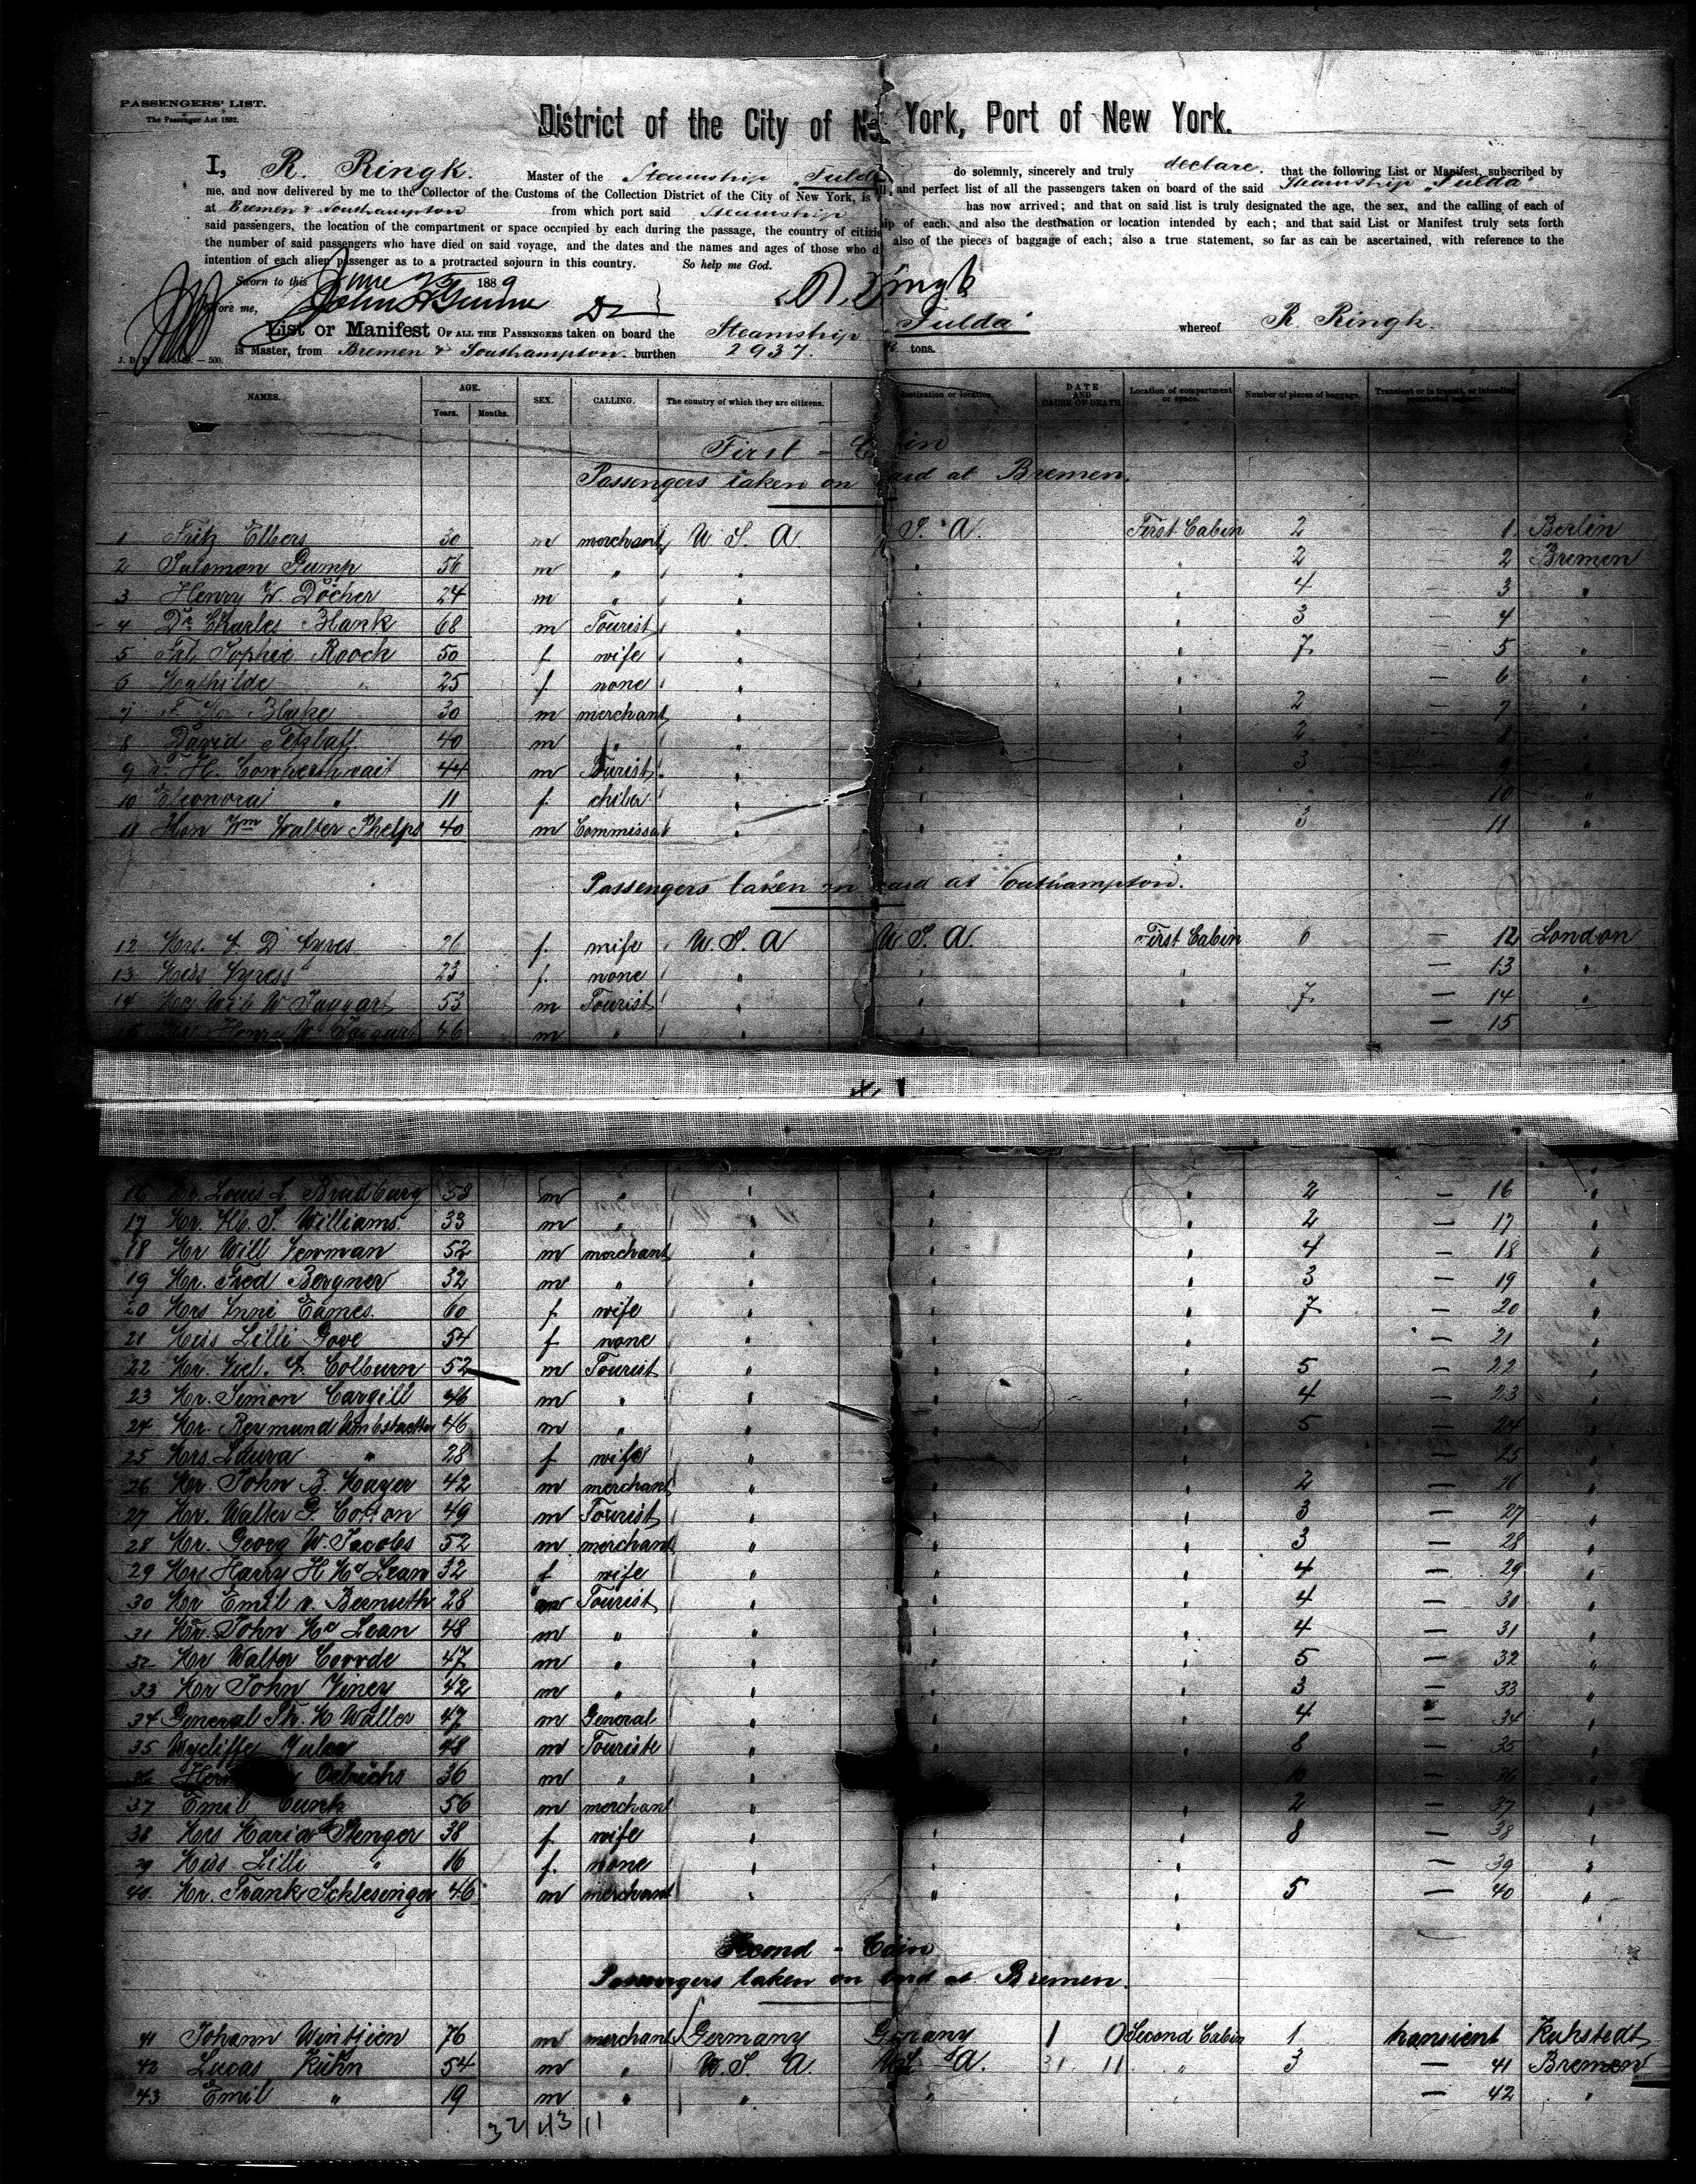 PASSENGERS' LIST.
The Passenger Act 1882.
District of the City of Ne York, Port of New York.
I, R. Ringk. Master of the Steamship "Fulda do solemnly, sincerely and truly declare. that the following List or Manifest, subscribed by
me, and now delivered by me to the Collector of the Customs of the Collection District of the City of New York, is and perfect list of all the passengers taken on board of the said Steamship "Fulda"
at Bremen & Southampton from which port said Steamship has now arrived; and that on said list is truly designated the age, the sex, and the calling of each of
said passengers, the location of the compartment or space occupied by each during the passage, the country of citize ip of each, and also the destination or location intended by each; and that said List or Manifest truly sets forth
the number of said passengers who have died on said voyage, and the dates and the names and ages of those who d also of the pieces of baggage of each; also a true statement, so far as can be ascertained, with reference to the
intention of each alien passenger as to a protracted sojourn in this country. So help me God.
Sworn to this June 1889 R. Ringk
before me,
List or Manifest OF ALL THE PASSENGERS taken on board the Steamship "Fulda" whereof R Ringk.
is Master, from Bremen & Southampton. burthen 2937. tons.
NAMES. AGE. Years. Months. SEX. CALLING. The country of which they are citizens. destination or location. DATE AND CAUSE OF DEATH Location of compartment or space. Number of pieces of baggage. Transient or in transit, or intending protracted sojourn.
First - Cabin
Passengers taken on oard at Bremen.
1 Fritz Elbers 30 m merchant U S. A. S. A. First Cabin 2 1 Berlin
2 Salomon Gump 56 m " " " " 2 — 2 Bremen
3 Henry W. Döcher 24 m " " " " 4 — 3 "
4 Dr. Charles Blank 68 m Tourist " " " 3 — 4 "
5 Sophie Rooch 50 f wife " " " 7 — 5 "
6 Mathilde " 25 f. none " " " — 6 "
7 Blake 30 m merchant " " 2 — 7
8 David Tetzlaff 40 m " " " 2 — 8
9 H. Comperthwait 44 m Tourist " " " 3 — 9
10 Eleonora " 11 f. child " " " 10 "
11 Hon Wm Walter Phelps 40 m Commissa " " " 3 — 11 "
Passengers taken on oard at Southampton.
12 Mrs. D Ayres 26 f. wife U. S. A U. S. A. First Cabin 6 — 12 London
13 Miss Ayress 23 f. none " " " — 13 "
14 W Taggart 53 m Tourist " " " 7 — 14 "
15 Mr Henry W. Taggart 46 m " " " " — 15
16 Mr. Louis L. Bradburg 53 m " " " " 2 — 16 "
17 Mr. S. Williams 33 m " " " " 2 — 17 "
18 Mr Will Lerman 52 m merchant " " " 4 — 18 "
19 Mr. Fred Bergner 32 m " " " " 3 — 19 "
20 Mrs Anni Eames 60 f. wife " " " 7 — 20 "
21 Miss Lilli Gove 54 f none " " " — 21 "
22 Mr. Colburn 52 m Tourist " " " 5 — 22 "
23 Mr. Simon Cargill 46 m " " " " 4 — 23 "
24 Mr. Reymund 46 m " " " " 5 — 24 "
25 Mrs Laura " 28 f wife " " " — 25 "
26 Mr. John B. Mayer 42 m merchant " " " 2 — 26 "
27 Mr. Walter G. Cotton 49 m Tourist " " " 3 — 27 "
28 Mr. Georg W. Jacobs 52 m merchant " " " 3 — 28 "
29 Mrs Harry H Mc Lean 32 f wife " " " 4 — 29 "
30 Mr Emil v. Bernuth 28 m Tourist " " " 4 — 30 "
31 Mr. John Mc Lean 48 m " " " " 4 — 31 "
32 Mr Walter 47 m " " " " 5 — 32 "
33 Mr John Viney 42 m " " " " 3 — 33 "
34 General Th. M Waller 47 m General " " " 4 — 34 "
35 Wycliffe Yuler 48 m Touriste " " " 8 — 35 "
36 Oelrichs 36 m " " " 10 — 36 "
37 Emil Cunk 56 m merchant " " 2 — 37 "
38 Mrs Maria Stenger 38 f. wife " " " 8 — 38 "
39 Miss Lilli " 16 f. none " " " — 39 "
40. Mr. Frank Schlesinger 46 m merchant " " " 5 — 40 "
Second - Cabin
Passengers taken on bord at Bremen.
41 Johann Wintjien 76 m merchant Germany Germany 1 0 Second Cabin 1 transient Kuhstedt
42 Lucas Kühn 54 m " U. S. A. U.S. A. 31 11 " 3 — 41 Bremen
43 Emil " 19 m " " " " — 42 "
32 43 11